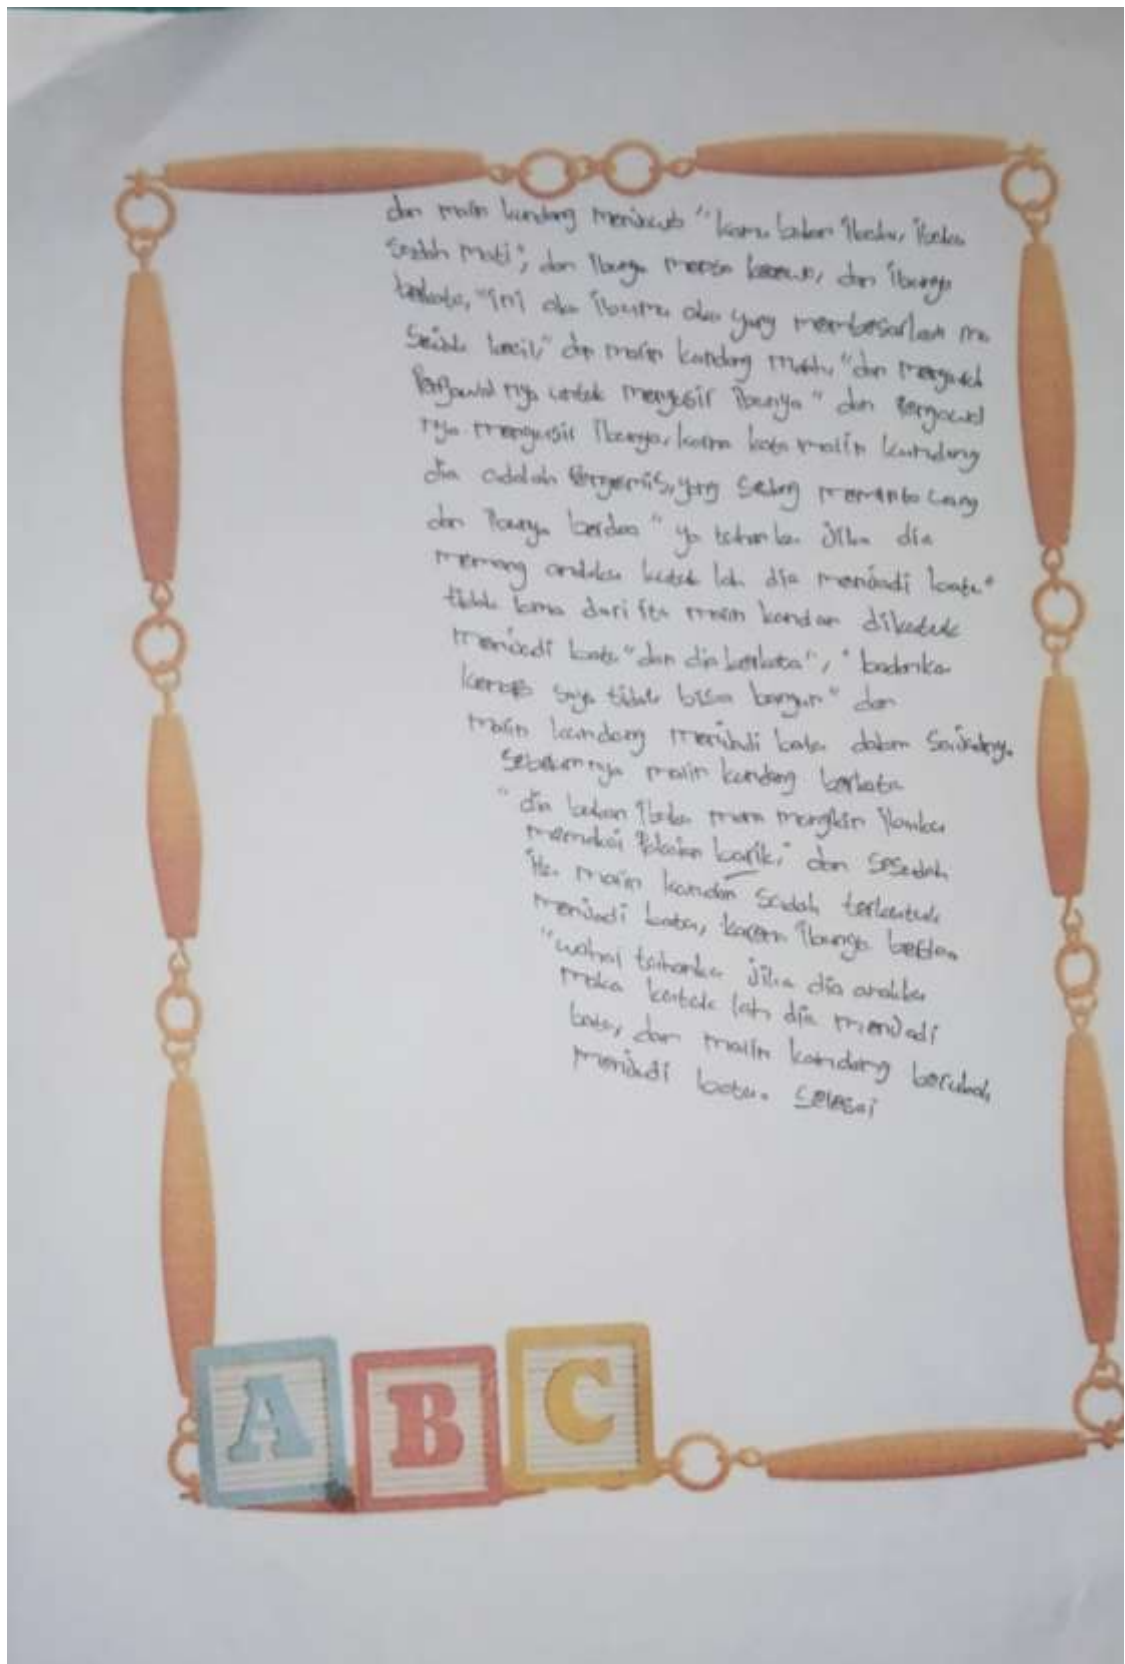 dan malin kundang menjawab "kamu bukan ibuku, ibuku
sudah mati", dan ibunya merasa kecewa, dan ibunya
berkata, "ini aku ibumu aku yang membesarkan mu
sejak kecil," dan malin kundang "dan mengajak
Pengawal nya untuk mengusir ibunya" dan Pengawal
nya mengusir ibunya, karna kata malin kundang
dia adalah Pengemis, yang seling meminta uang
dan ibunya berdoa "ya tuhanku jika dia
memang anakku kutuk lah dia menjadi batu"
tidak lama dari itu malin kundan dikutuk
menjadi batu "dan dia berkata", "badanku
keras saya tidak bisa bangun" dan
malin kundang menjadi batu dalam
sebelumnya malin kundang berkata
"dia bukan ibuku mana mungkin ibuku
memakai Pakaian barik," dan sesudah
itu malin kundan sudah terkutuk
menjadi batu, karena ibunya berdoa
"wahai tuhanku jika dia anakku
maka kutuk lah dia menjadi
batu, dan malin kundang berubah
menjadi batu. selesai
A B C